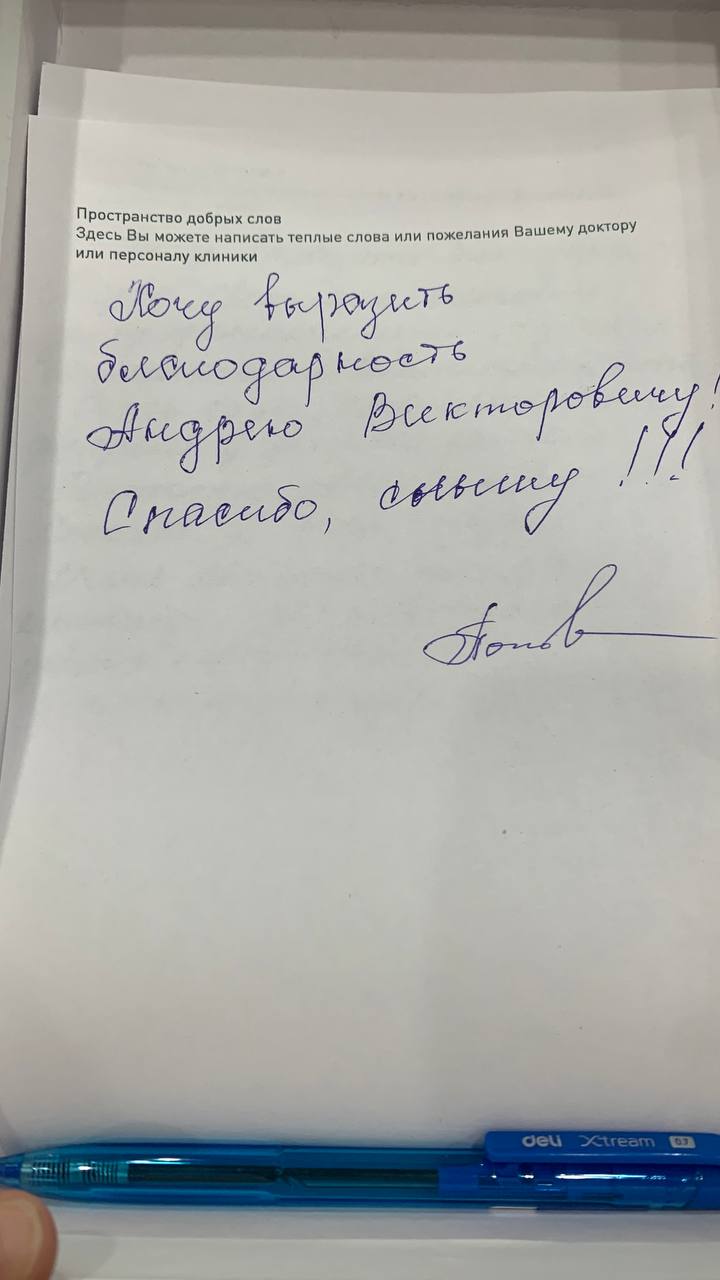 Пространство добрых слов
Здесь Вы можете написать теплые слова или пожелания Вашему доктору
или персоналу клиники
Хочу выразить
благодарность
Андрею Викторовичу!
Спасибо, !!!
Попов
deli Xtream 0.7